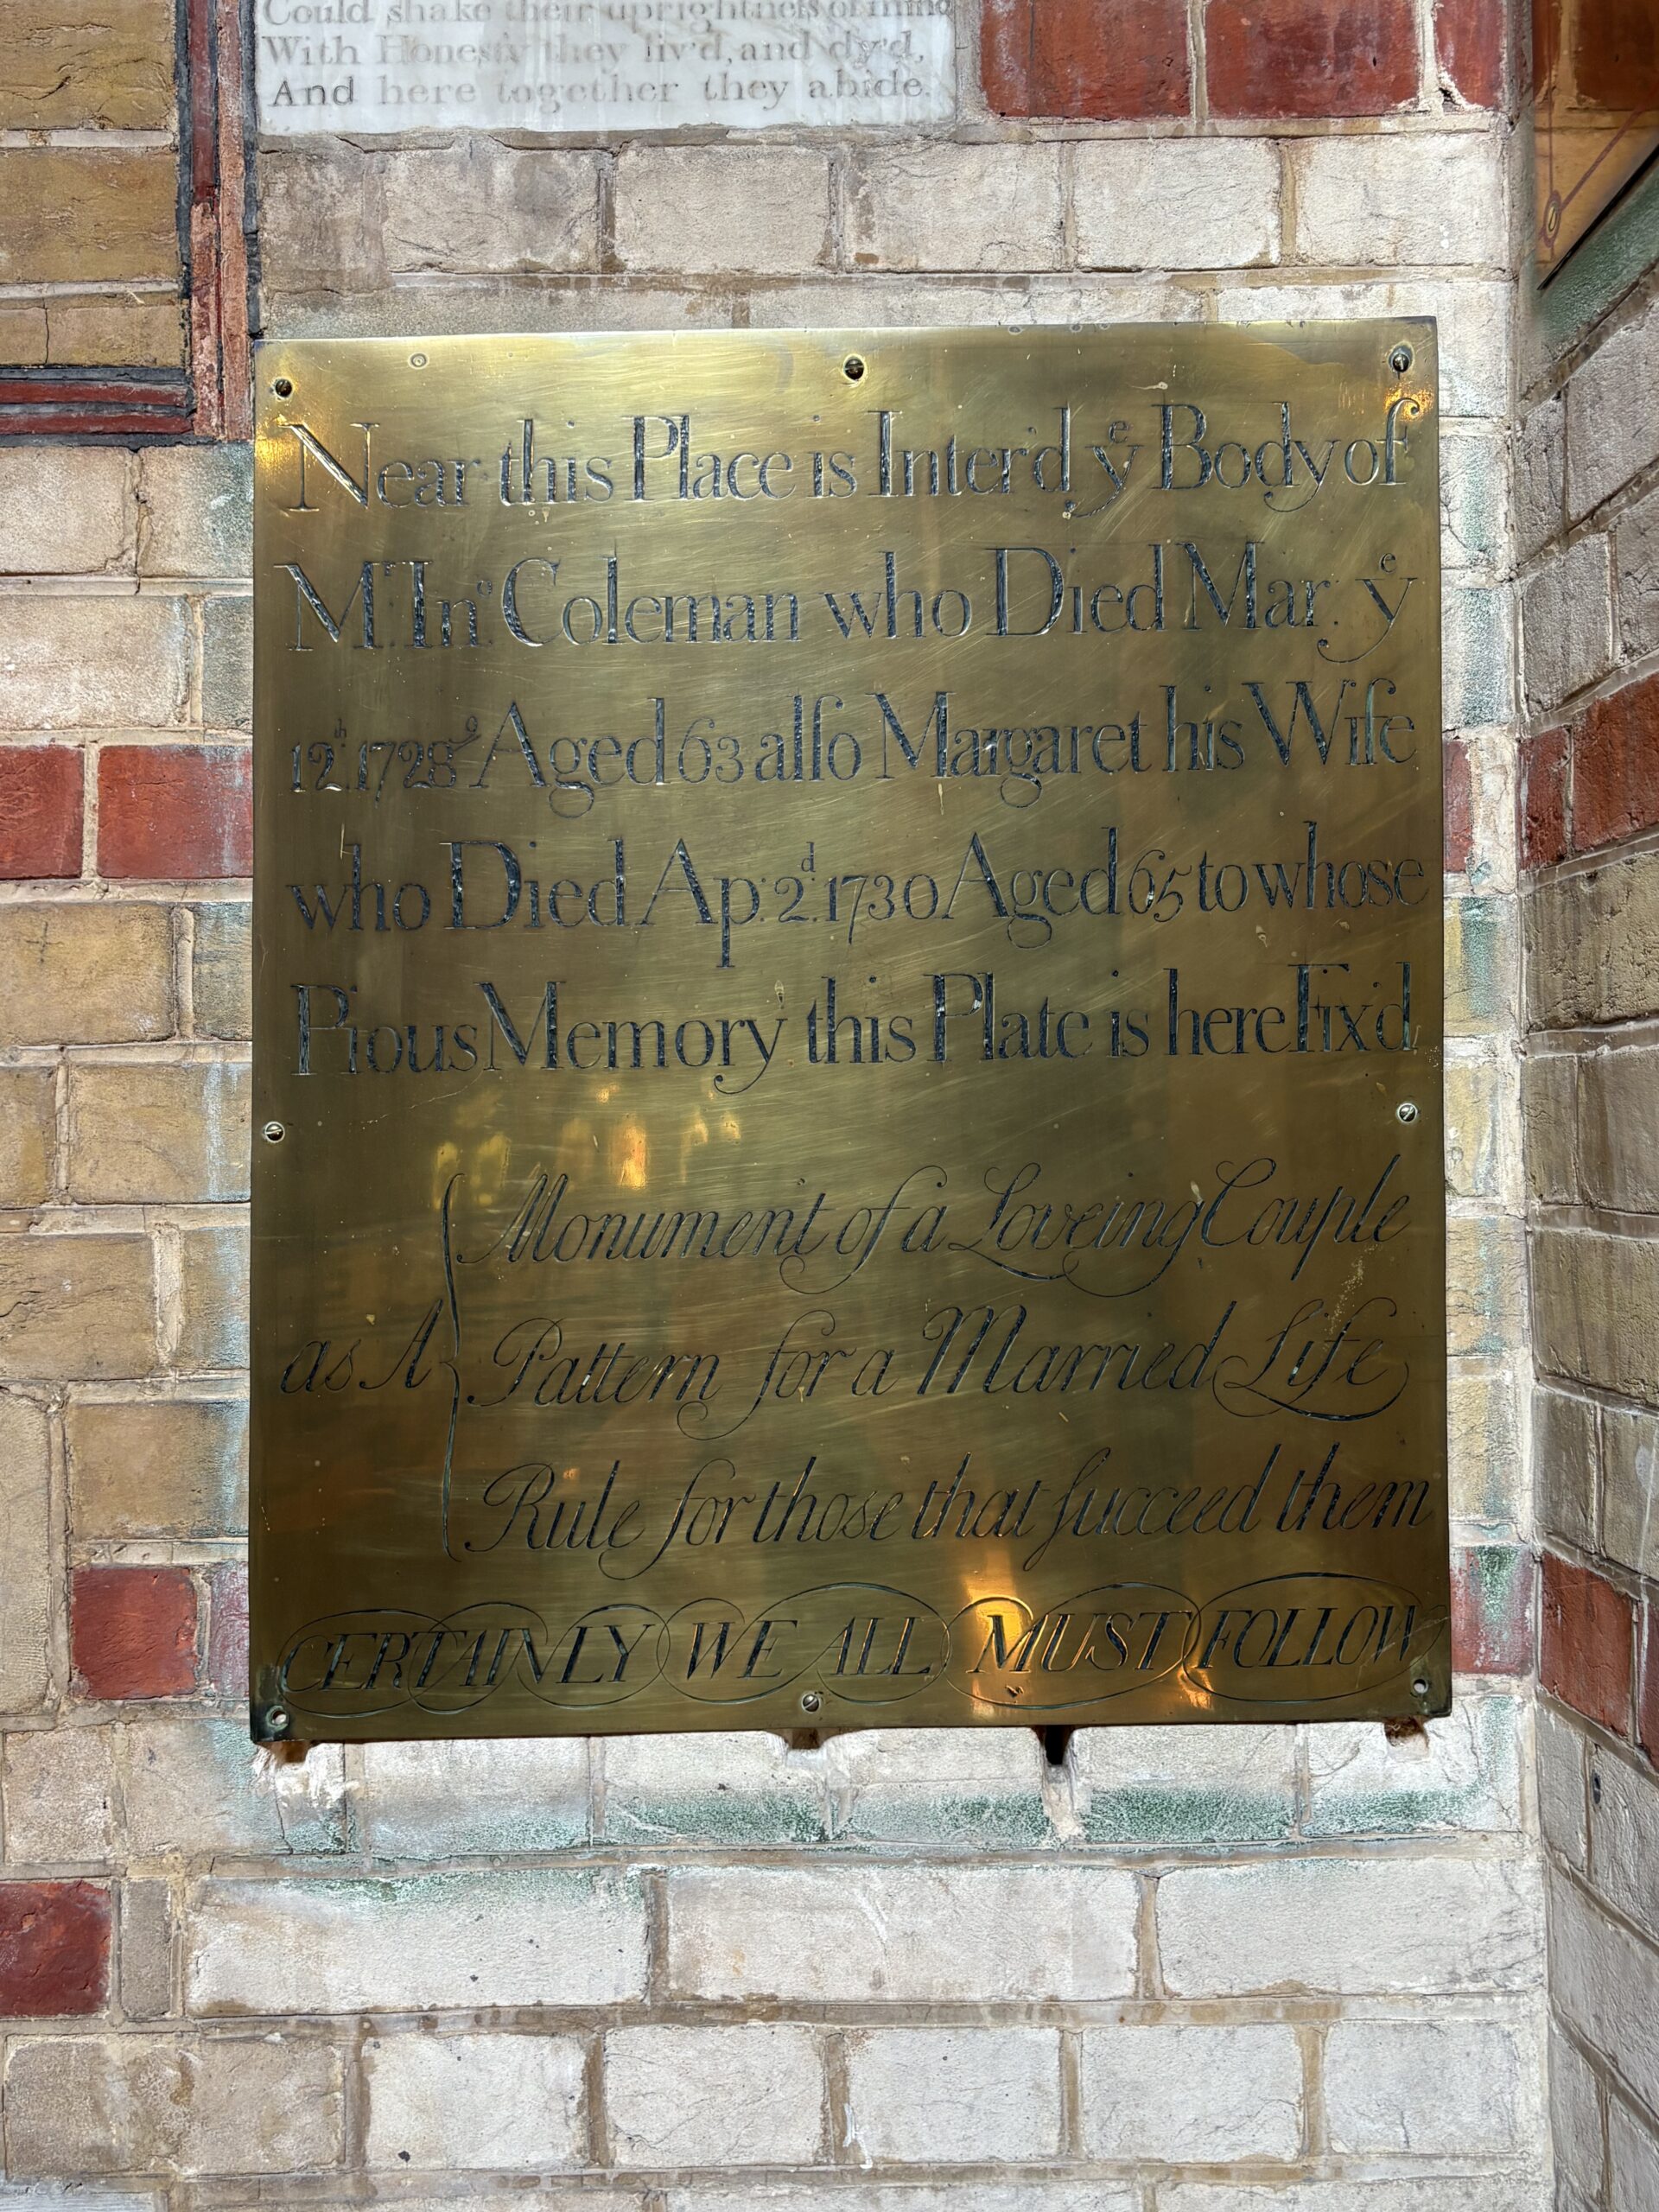 Could shake their uprightness of mind
With Honesty they liv'd, and dy'd,
And here together they abide.
Near this Place is Inter'd yᵉ Body of
Mʳ. Inᵒ. Coleman who Died Mar: yᵉ
12ᵗʰ. 1728⁄9 Aged 63 alſo Margaret his Wife
who Died Ap: 2ᵈ. 1730 Aged 65 to whose
Pious Memory this Plate is here Fix'd
Monument of a Loveing Couple
as A { Pattern for a Married Life
Rule for those that ſucceed them
CERTAINLY WE ALL MUST FOLLOW